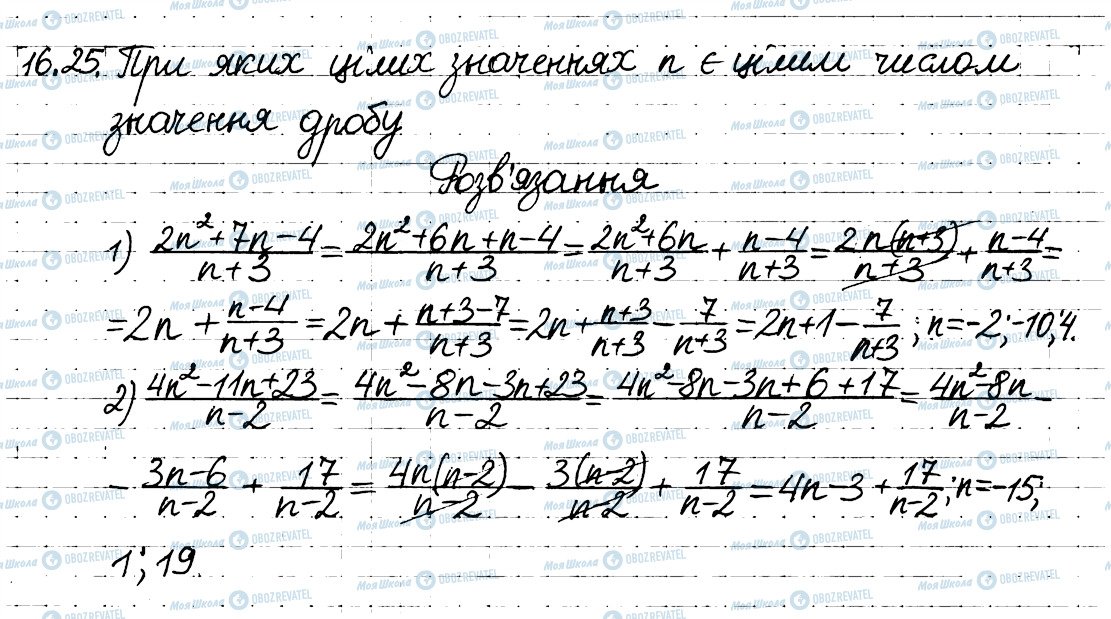 16.25. При яких цілих значеннях n є цілим числом
значення дробу
Розв'язання
1) (2n²+7n-4)/(n+3) = (2n²+6n+n-4)/(n+3) = (2n²+6n)/(n+3) + (n-4)/(n+3) = (2n(n+3))/(n+3) + (n-4)/(n+3) =
= 2n + (n-4)/(n+3) = 2n + (n+3-7)/(n+3) = 2n + (n+3)/(n+3) - 7/(n+3) = 2n+1 - 7/(n+3); n=-2;-10;4.
2) (4n²-11n+23)/(n-2) = (4n²-8n-3n+23)/(n-2) = (4n²-8n-3n+6+17)/(n-2) = (4n²-8n)/(n-2) -
- (3n-6)/(n-2) + 17/(n-2) = (4n(n-2))/(n-2) - (3(n-2))/(n-2) + 17/(n-2) = 4n-3 + 17/(n-2); n=-15;
1; 19.